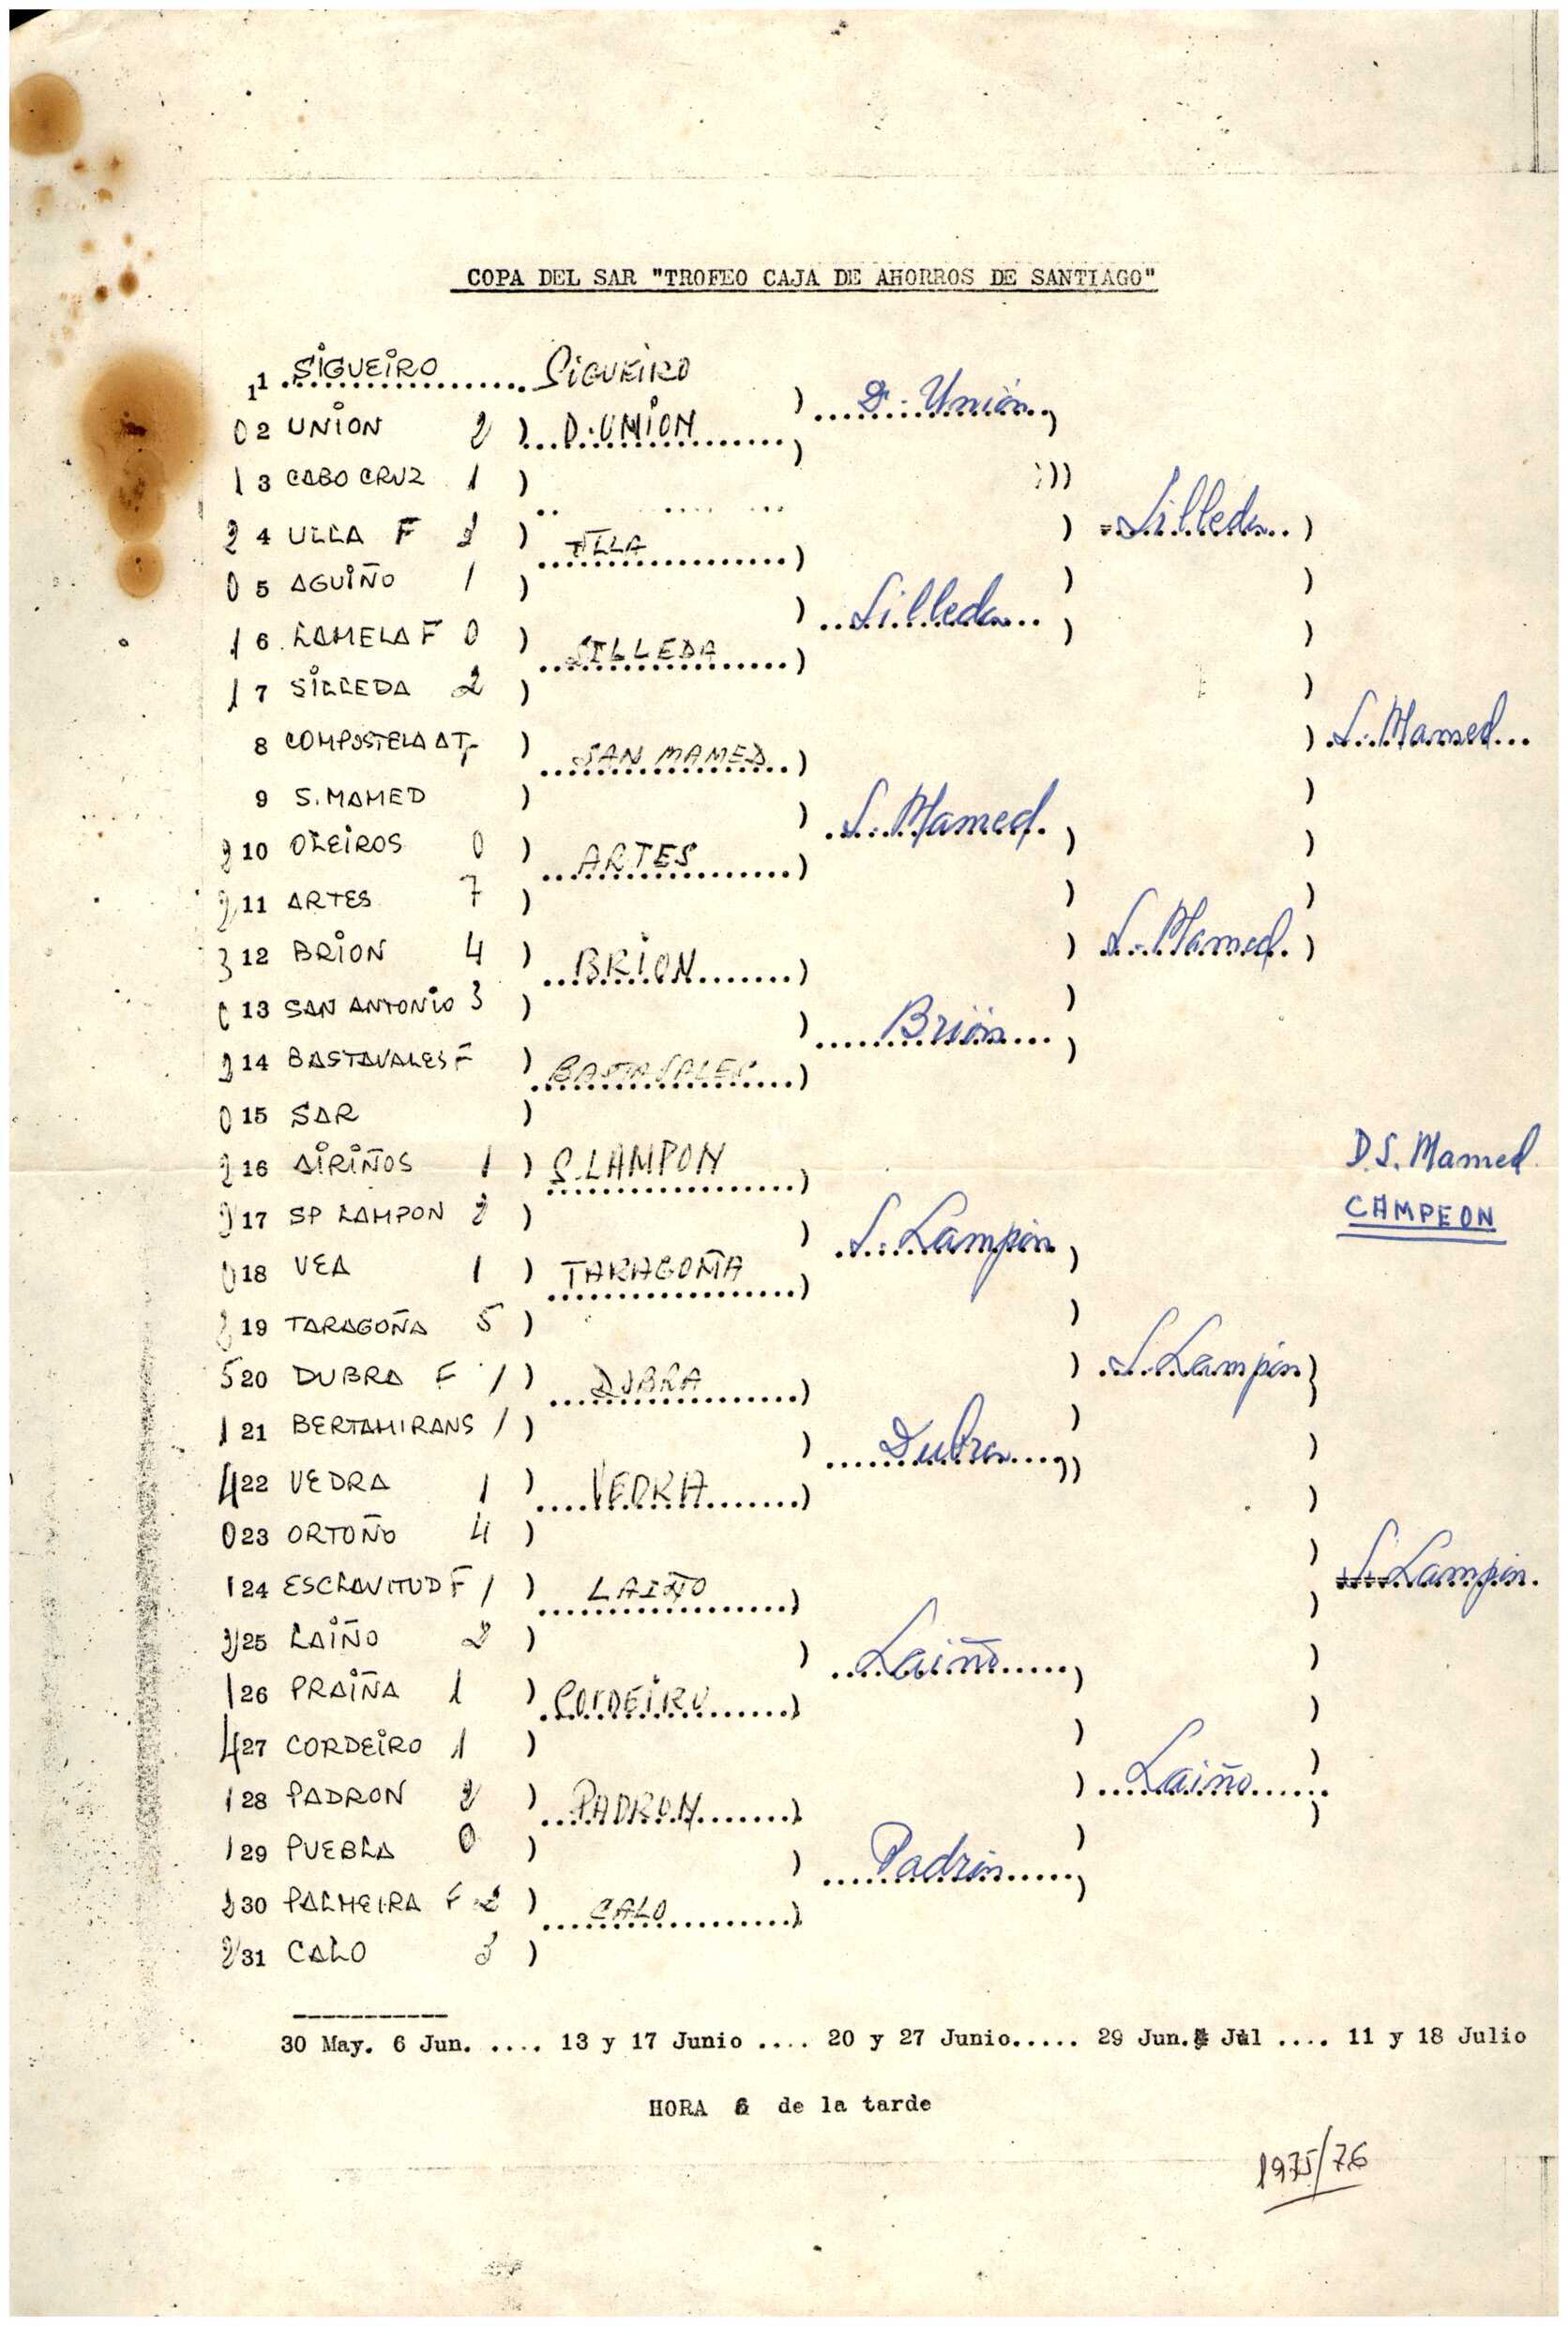 COPA DEL SAR "TROFEO CAJA DE AHORROS DE SANTIAGO"
1 SIGUEIRO SIGUEIRO
D. Unión
0 2 UNION 2 D. UNION
1 3 CABO CRUZ 1
Silleda
2 4 ULLA F ULLA
0 5 AGUIÑO 1
Silleda
1 6 LAMELA F 0 SILLEDA
1 7 SILLEDA 2
S. Mamed
8 COMPOSTELA AT, SAN MAMED
9 S. MAMED
S. Mamed.
2 10 OLEIROS 0 ARTES
2 11 ARTES 7
S. Mamed.
3 12 BRION 4 BRION
0 13 SAN ANTONIO 3
Brión
2 14 BASTAVALES F BASTAVALES
0 15 SAR
D. S. Mamed.
2 16 AIRIÑOS 1 S. LAMPON
CAMPEON
2 17 SP LAMPON 2
S. Lampón
0 18 VEA 1 TARAGOÑA
19 TARAGOÑA 5
S. Lampón
5 20 DUBRA F 1 DUBRA
1 21 BERTAMIRANS 1
Dubra
4 22 VEDRA 1 VEDRA
0 23 ORTOÑO 4
S. Lampón.
1 24 ESCLAVITUD F 1 LAIÑO
2 25 LAIÑO 2
Laiño
1 26 PRAIÑA 1 CORDEIRO
4 27 CORDEIRO 1
Laiño
1 28 PADRON 2 PADRON
1 29 PUEBLA 0
Padrón
30 PALMEIRA F 2 CALO
2 31 CALO 3
30 May. 6 Jun. .... 13 y 17 Junio .... 20 y 27 Junio..... 29 Jun. Jul .... 11 y 18 Julio
HORA 6 de la tarde
1975/76